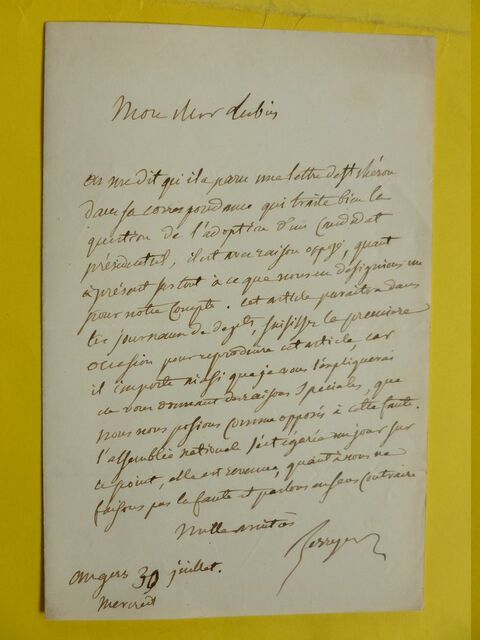 Mon cher Dubois
on me dit qu'il a paru une lettre de Mr
dans sa correspondance qui traite bien la
question de l'adoption d'un candidat
présidentiel, il est avec raison opposé, quant
à présent surtout à ce que nous en désignions un
pour notre compte. cet article paraîtra dans
les journaux de saisissez la première
occasion pour reproduire cet article, car
il importe ainsi que je vous l'expliquerai
en vous donnant des raisons spéciales, que
nous nous posions comme opposés à cette faute.
l'assemblée nationale s'est égarée un jour sur
ce point, elle est revenue, quant à nous ne
faisons pas la faute et parlons en sens contraire
Mille amitiés
Berryer
angers 30 juillet.
mercredi